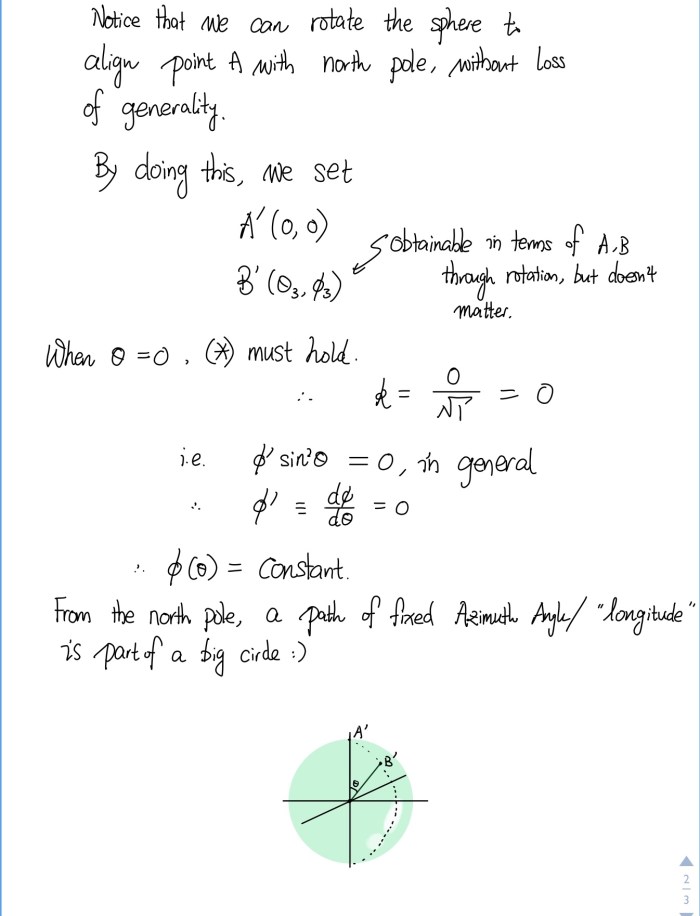 Notice that we can rotate the sphere to
align point A with north pole, without loss
of generality.
By doing this, we set
A'(0, 0)
B'(θ₃, ϕ₃)
obtainable in terms of A, B
through rotation, but doesn't
matter.
When θ = 0, (*) must hold.
∴ k = 0/√1 = 0
i.e. ϕ' sin²θ = 0, in general
∴ ϕ' ≡ dϕ/dθ = 0
∴ ϕ(θ) = constant.
From the north pole, a path of fixed Azimuth Angle/ "longitude"
is part of a big circle :)
A'
B'
θ
2
3